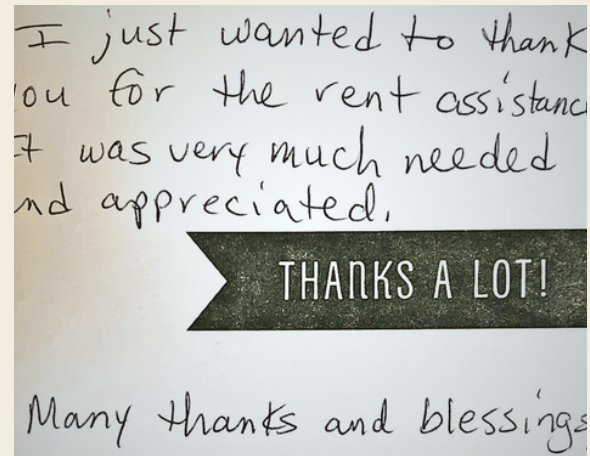 I just wanted to thank
ou for the rent assistanc
t was very much needed
nd appreciated.
THANKS A LOT!
Many thanks and blessings